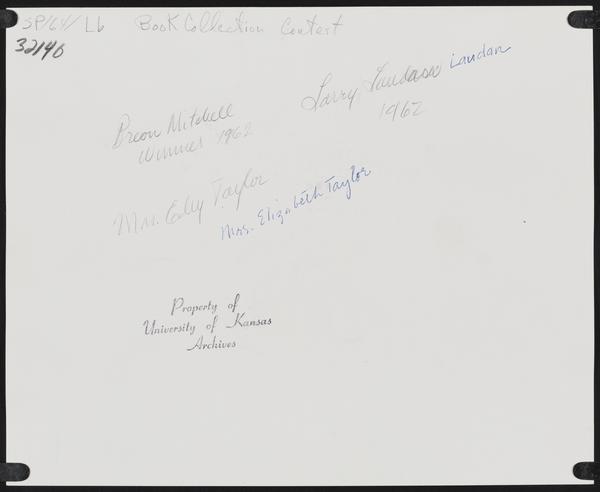 SP/64/ Lb Book Collection Contest
32140
Larry Laudan
1962
Breon Mitchell
Winner 1962
Mrs. Taylor
Mrs. Elizabeth Taylor
Property of
University of Kansas
Archives